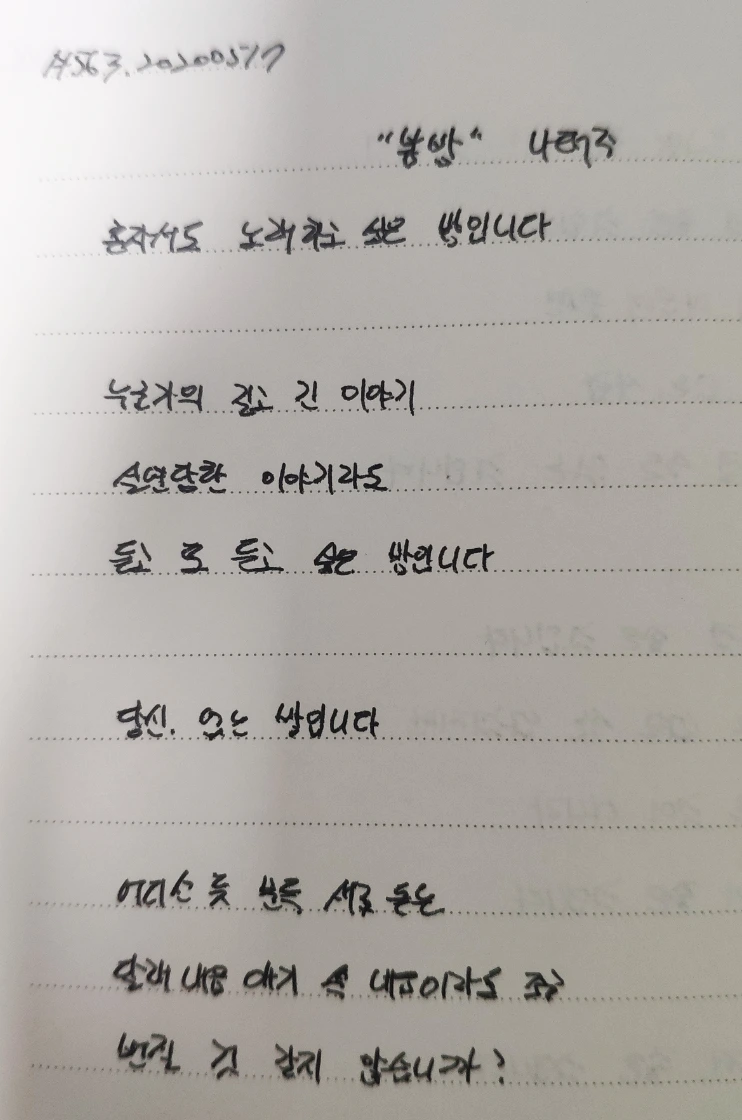 #563. 20200517
"봄밤" 나태주
혼자서도 노래하고 싶은 밤입니다
누군가의 길고 긴 이야기
실연담한 이야기라도
듣고 또 듣고 싶은 밤입니다
당신. 있는 밤입니다
어디선 듯 문득 새로 돋는
달래 내음 애기 쑥 내음이라도 조금
번질 것 같지 않습니까?